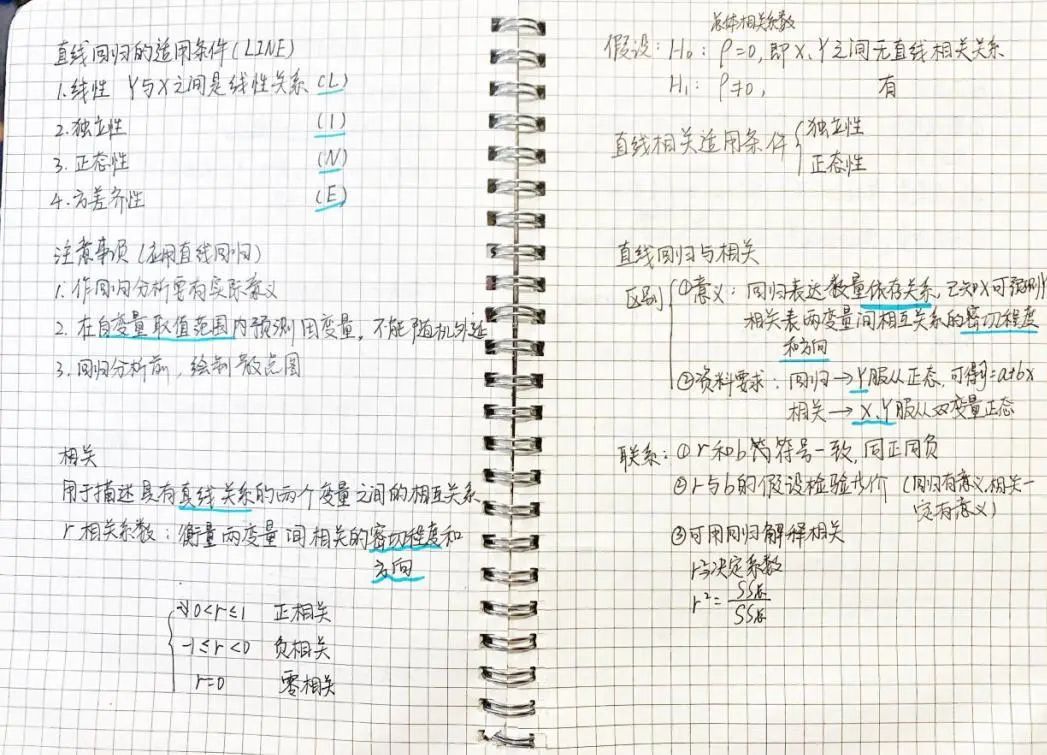 直线回归的适用条件(LINE)
1.线性 Y与X之间是线性关系 (L)
2.独立性 (I)
3.正态性 (N)
4.方差齐性 (E)
注意事项(应用直线回归)
1.作回归分析要有实际意义
2.在自变量取值范围内预测因变量,不能随机外延
3.回归分析前,绘制散点图
相关
用于描述具有直线关系的两个变量之间的相互关系
r相关系数:衡量两变量间相关的密切程度和
方向
0<r≤1 正相关
-1≤r<0 负相关
r=0 零相关
总体相关系数
假设:H₀:ρ=0,即X、Y之间无直线相关关系
H₁:ρ≠0, 有
直线相关适用条件
独立性
正态性
直线回归与相关
区别
①意义:回归表达数量依存关系,已知X可预测Y
相关表两变量间相互关系的密切程度
和方向
②资料要求:回归→Y服从正态,可得ŷ=a+bx
相关→X、Y服从双变量正态
联系:①r和b符号一致,同正同负
②r与b的假设检验等价(回归有意义,相关一
定有意义)
③可用回归解释相关
r²决定系数
r²=SS回/SS总